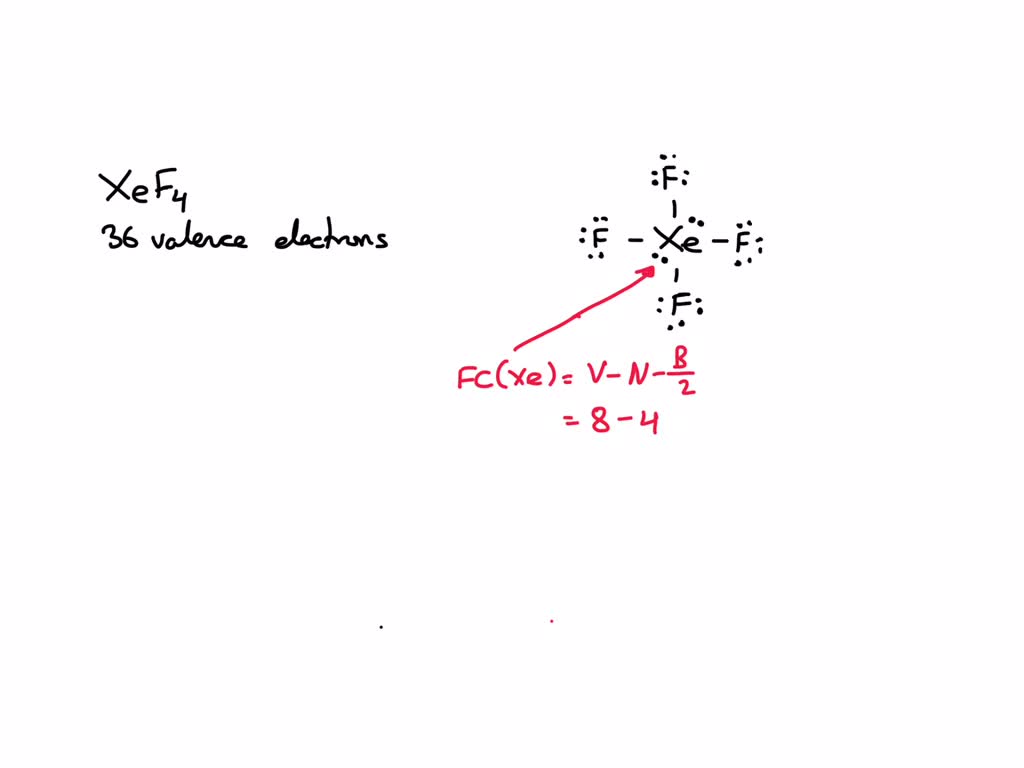 XeF4
36 valence electrons
:F̈:
:F̤̈ - Ẍ̤e - F̤̈:
:F̤:
FC(Xe) = V - N - B/2
= 8 - 4